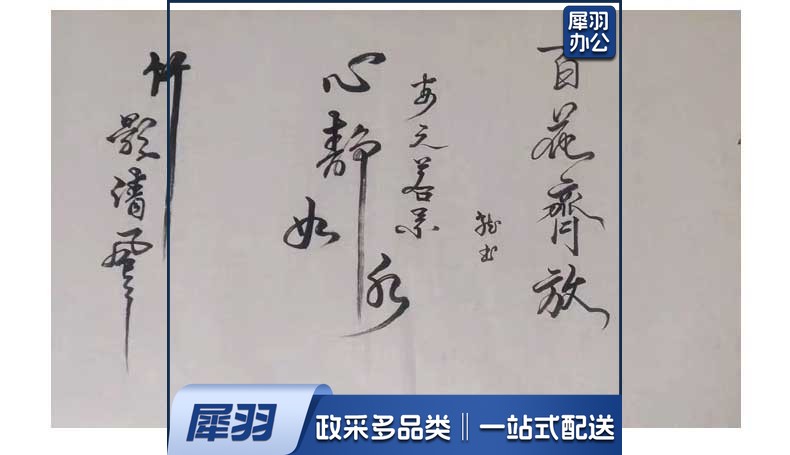 犀羽
办公
百花齊放
心靜如水
竹影清風
犀羽
政采多品类 || 一站式配送